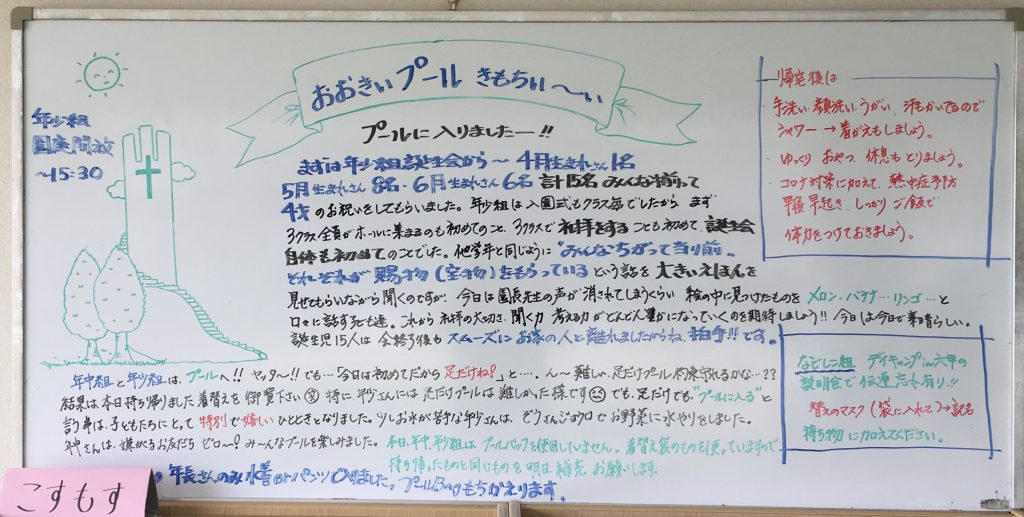 おおきいプール きもちぃ〜ぃ
年少組
園庭開放
〜15:30
プールに入りましたー!!
まずは年少組誕生会から〜 4月生まれさん1名
5月生まれさん8名・6月生まれさん6名 計15名 みんな揃って
4才のお祝いをしてもらいました。年少組は入園式もクラス毎でしたから まず
3クラス全員がホールに集まるのも初めてのこと、3クラスで礼拝をすることも初めて、誕生会
自体も初めてのことでした。他学年と同じように"みんなちがって当り前。
それぞれが賜物(宝物)をもらっているという話を 大きいえほんを
見せてもらいながら聞くのですが、今日は園長先生の声が消されてしまうくらい 絵の中に見つけたものを メロン・バナナ…リンゴ…と
口々に話す子ども達。これから礼拝の大切さ、聞く力 考える力がどんどん豊かになっていくのを期待しましょう!! 今日は今日で素晴らしい。
誕生児15人は 会終了後も スムーズにお家の人と離れましたからね、拍手!!です。
年中組と年少組は、プールへ!! ヤッター!! でも…「今日は初めてだから足だけね!」と…. ん〜難しい、足だけプール 約束守れるかな…??
結果は本日持ち帰りました着替えを御覧下さい 特に年少さんには足だけプールは難しかった様です でも、足だけでも"プールに入る"と
言う事は、子どもたちにとって特別で嬉しいひとときとなりました。少しお水が苦手な年少さんは、ぞうさんジョウロでお野菜に水やりをしました。
年中さんは、嫌がるお友だち ゼロー! み〜んなプールを楽しみました。
本日、年中、年少組はプールバックを使用していません。着替え袋のものを使っていますので
持ち帰ったものと同じものを明日、補充 お願いします。
年長さんのみ水着orパンツで入りました。プールBagもちかえります。
帰宅後は
・手洗い・顔洗い・うがい、汗をかいてるので
シャワー→着がえもしましょう。
・ゆっくり おやつ、休息もとりましょう。
・コロナ対策に加えて、熱中症予防
早寝早起き、しっかりご飯で
体力をつけておきましょう。
なでしこ組 デイキャンプin六甲の
説明会で伝達忘れ有り!!
替えのマスク(袋に入れて)→記名
持ち物に加えてください。
こすもす